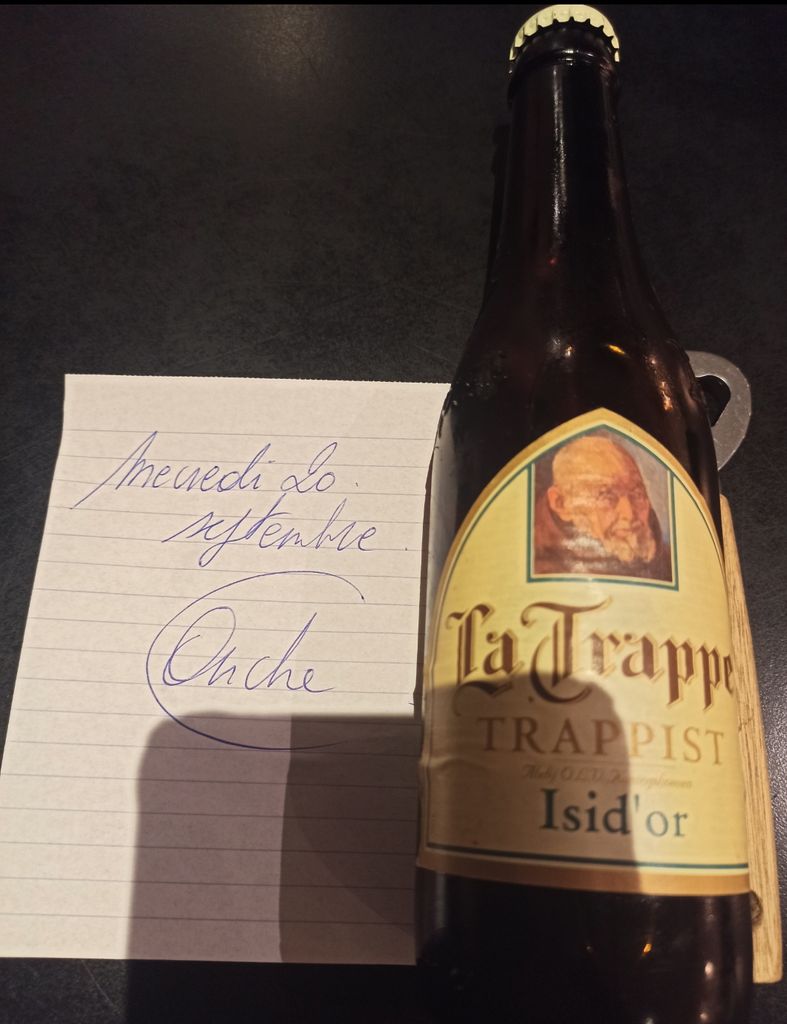 Mercredi 20.
septembre.
Onche
La Trappe
TRAPPIST
Isid'or